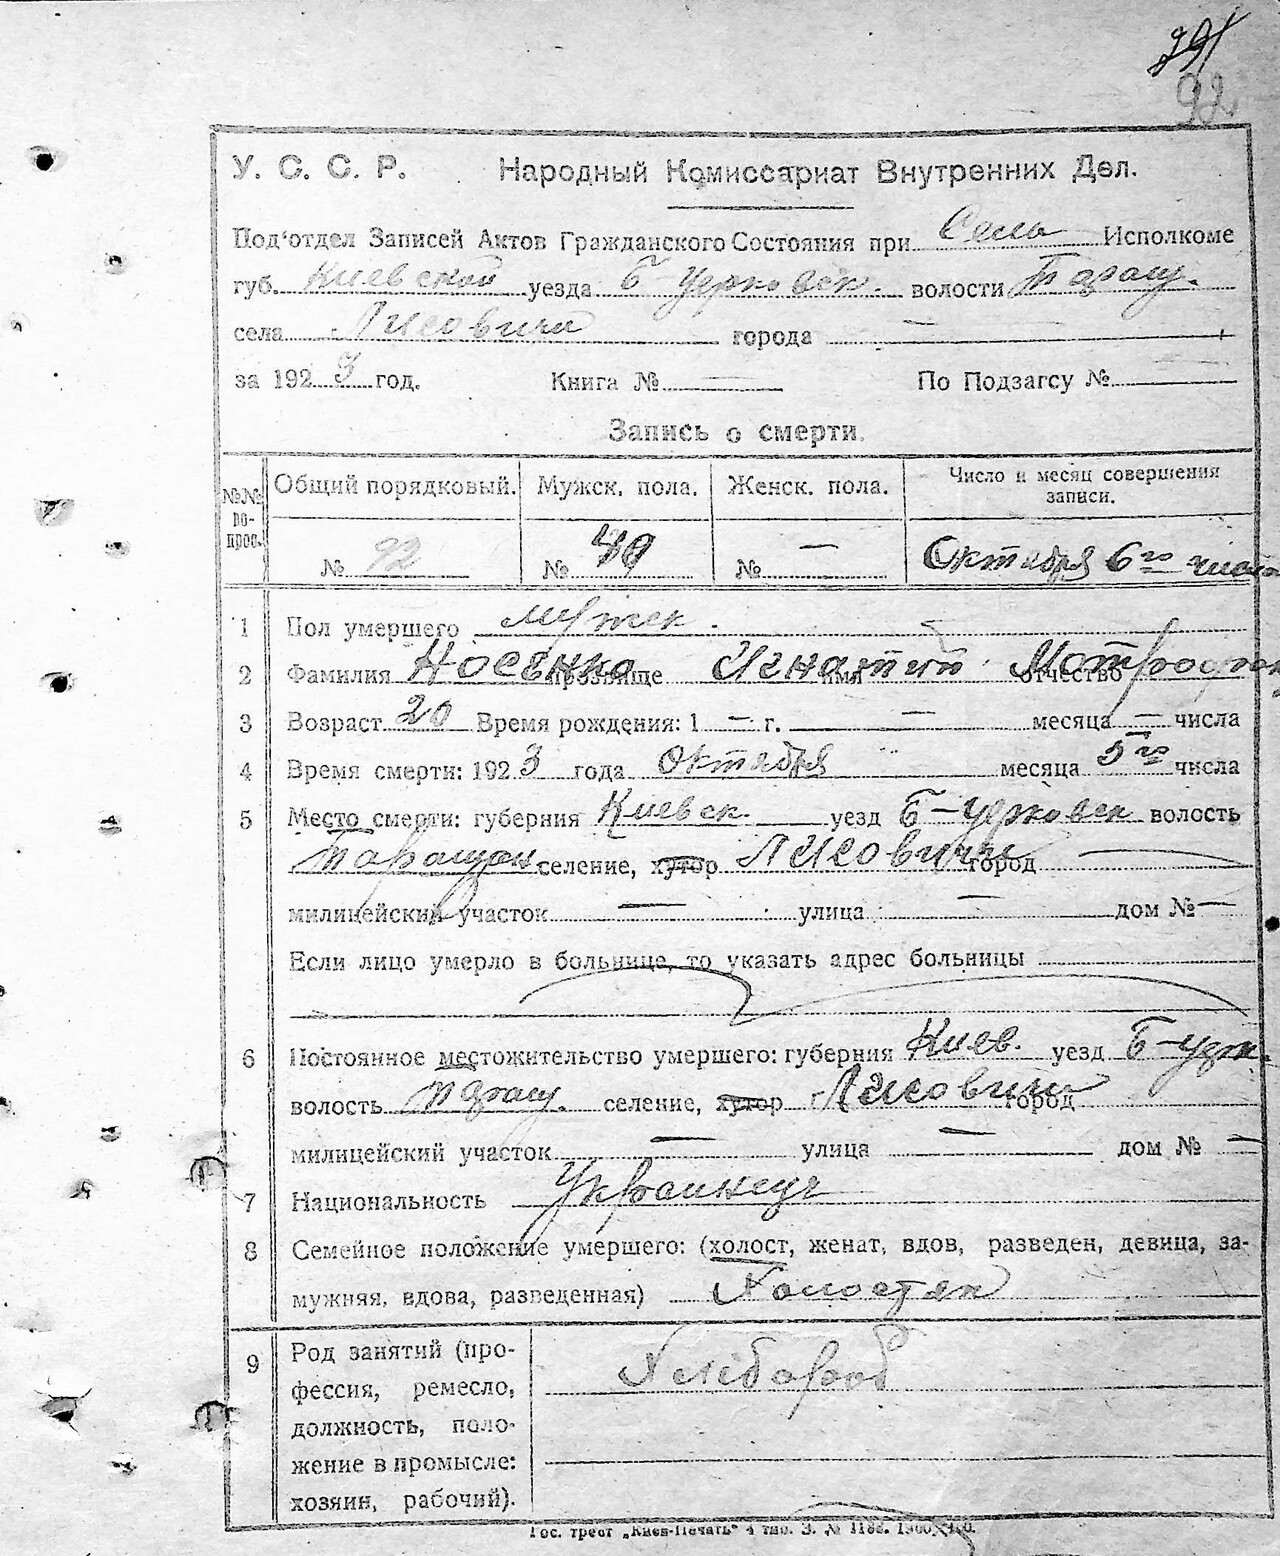 92
У. С. С. Р. Народный Комиссариат Внутренних Дел.
Под'отдел Записей Актов Гражданского Состояния при Сель Исполкоме
губ. Киевской уезда Б-Церковск. волости Таращ.
села Лисовичи города —
за 1923 год. Книга № — По Подзагсу № —
Запись о смерти.
№№ вопрос. Общий порядковый. Мужск. пола. Женск. пола. Число и месяц совершения записи.
№ 92 № 49 № — Октября 6го числа
1 Пол умершего мужск.
2 Фамилия Носенко прозвище Игнатий имя отчество
3 Возраст 20 Время рождения: 1 — г. — месяца — числа
4 Время смерти: 1923 года Октября месяца 5го числа
5 Место смерти: губерния Киевск. уезд Б-Церковск волость
Таращан селение, хутор Лисовичи город —
милицейский участок — улица — дом № —
Если лицо умерло в больнице, то указать адрес больницы
6 Постоянное местожительство умершего: губерния Киев. уезд Б-Церк.
волость Таращ. селение, хутор Лисовичи город
милицейский участок — улица — дом № —
7 Национальность Украинец
8 Семейное положение умершего: (холост, женат, вдов, разведен, девица, за-
мужняя, вдова, разведенная) Холостяк
9 Род занятий (про-
фессия, ремесло,
должность, поло-
жение в промысле:
хозяин, рабочий).
Хлебороб
Гос. трест „Киев-Печать" 4 тип. З. № 1188.